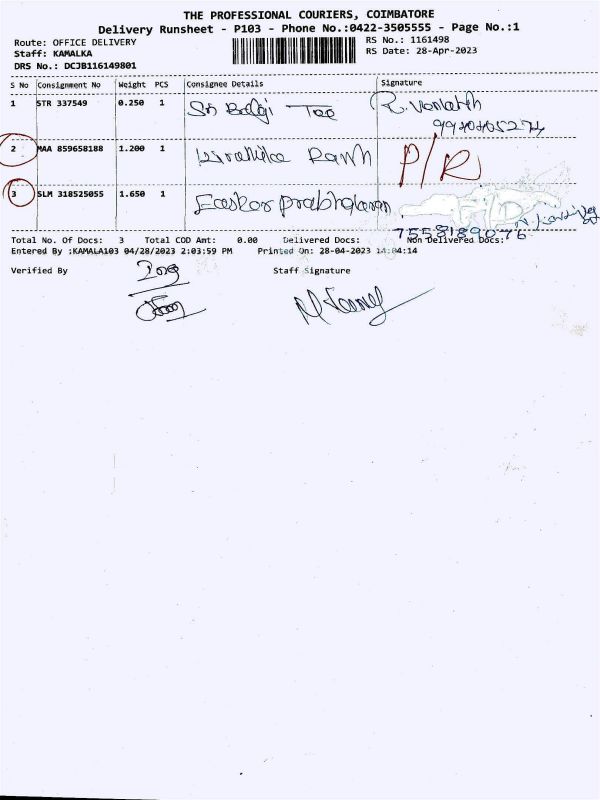 THE PROFESSIONAL COURIERS, COIMBATORE
Delivery Runsheet - P103 - Phone No.:0422-3505555 - Page No.:1
Route: OFFICE DELIVERY
RS No.: 1161498
Staff: KAMALKA
RS Date: 28-Apr-2023
DRS No.: DCJB116149801
S No Consignment No Weight PCS Consignee Details Signature
1 STR 337549 0.250 1 Sri Balaji Tee
2 MAA 859658188 1.200 1 Ram P/R
3 SLM 318525055 1.650 1 Easkor prabhakaran
7558189076
Total No. Of Docs: 3 Total COD Amt: 0.00 Delivered Docs: Non Delivered Docs:
Entered By :KAMALA103 04/28/2023 2:03:59 PM Printed On: 28-04-2023 14:04:14
Verified By Staff Signature